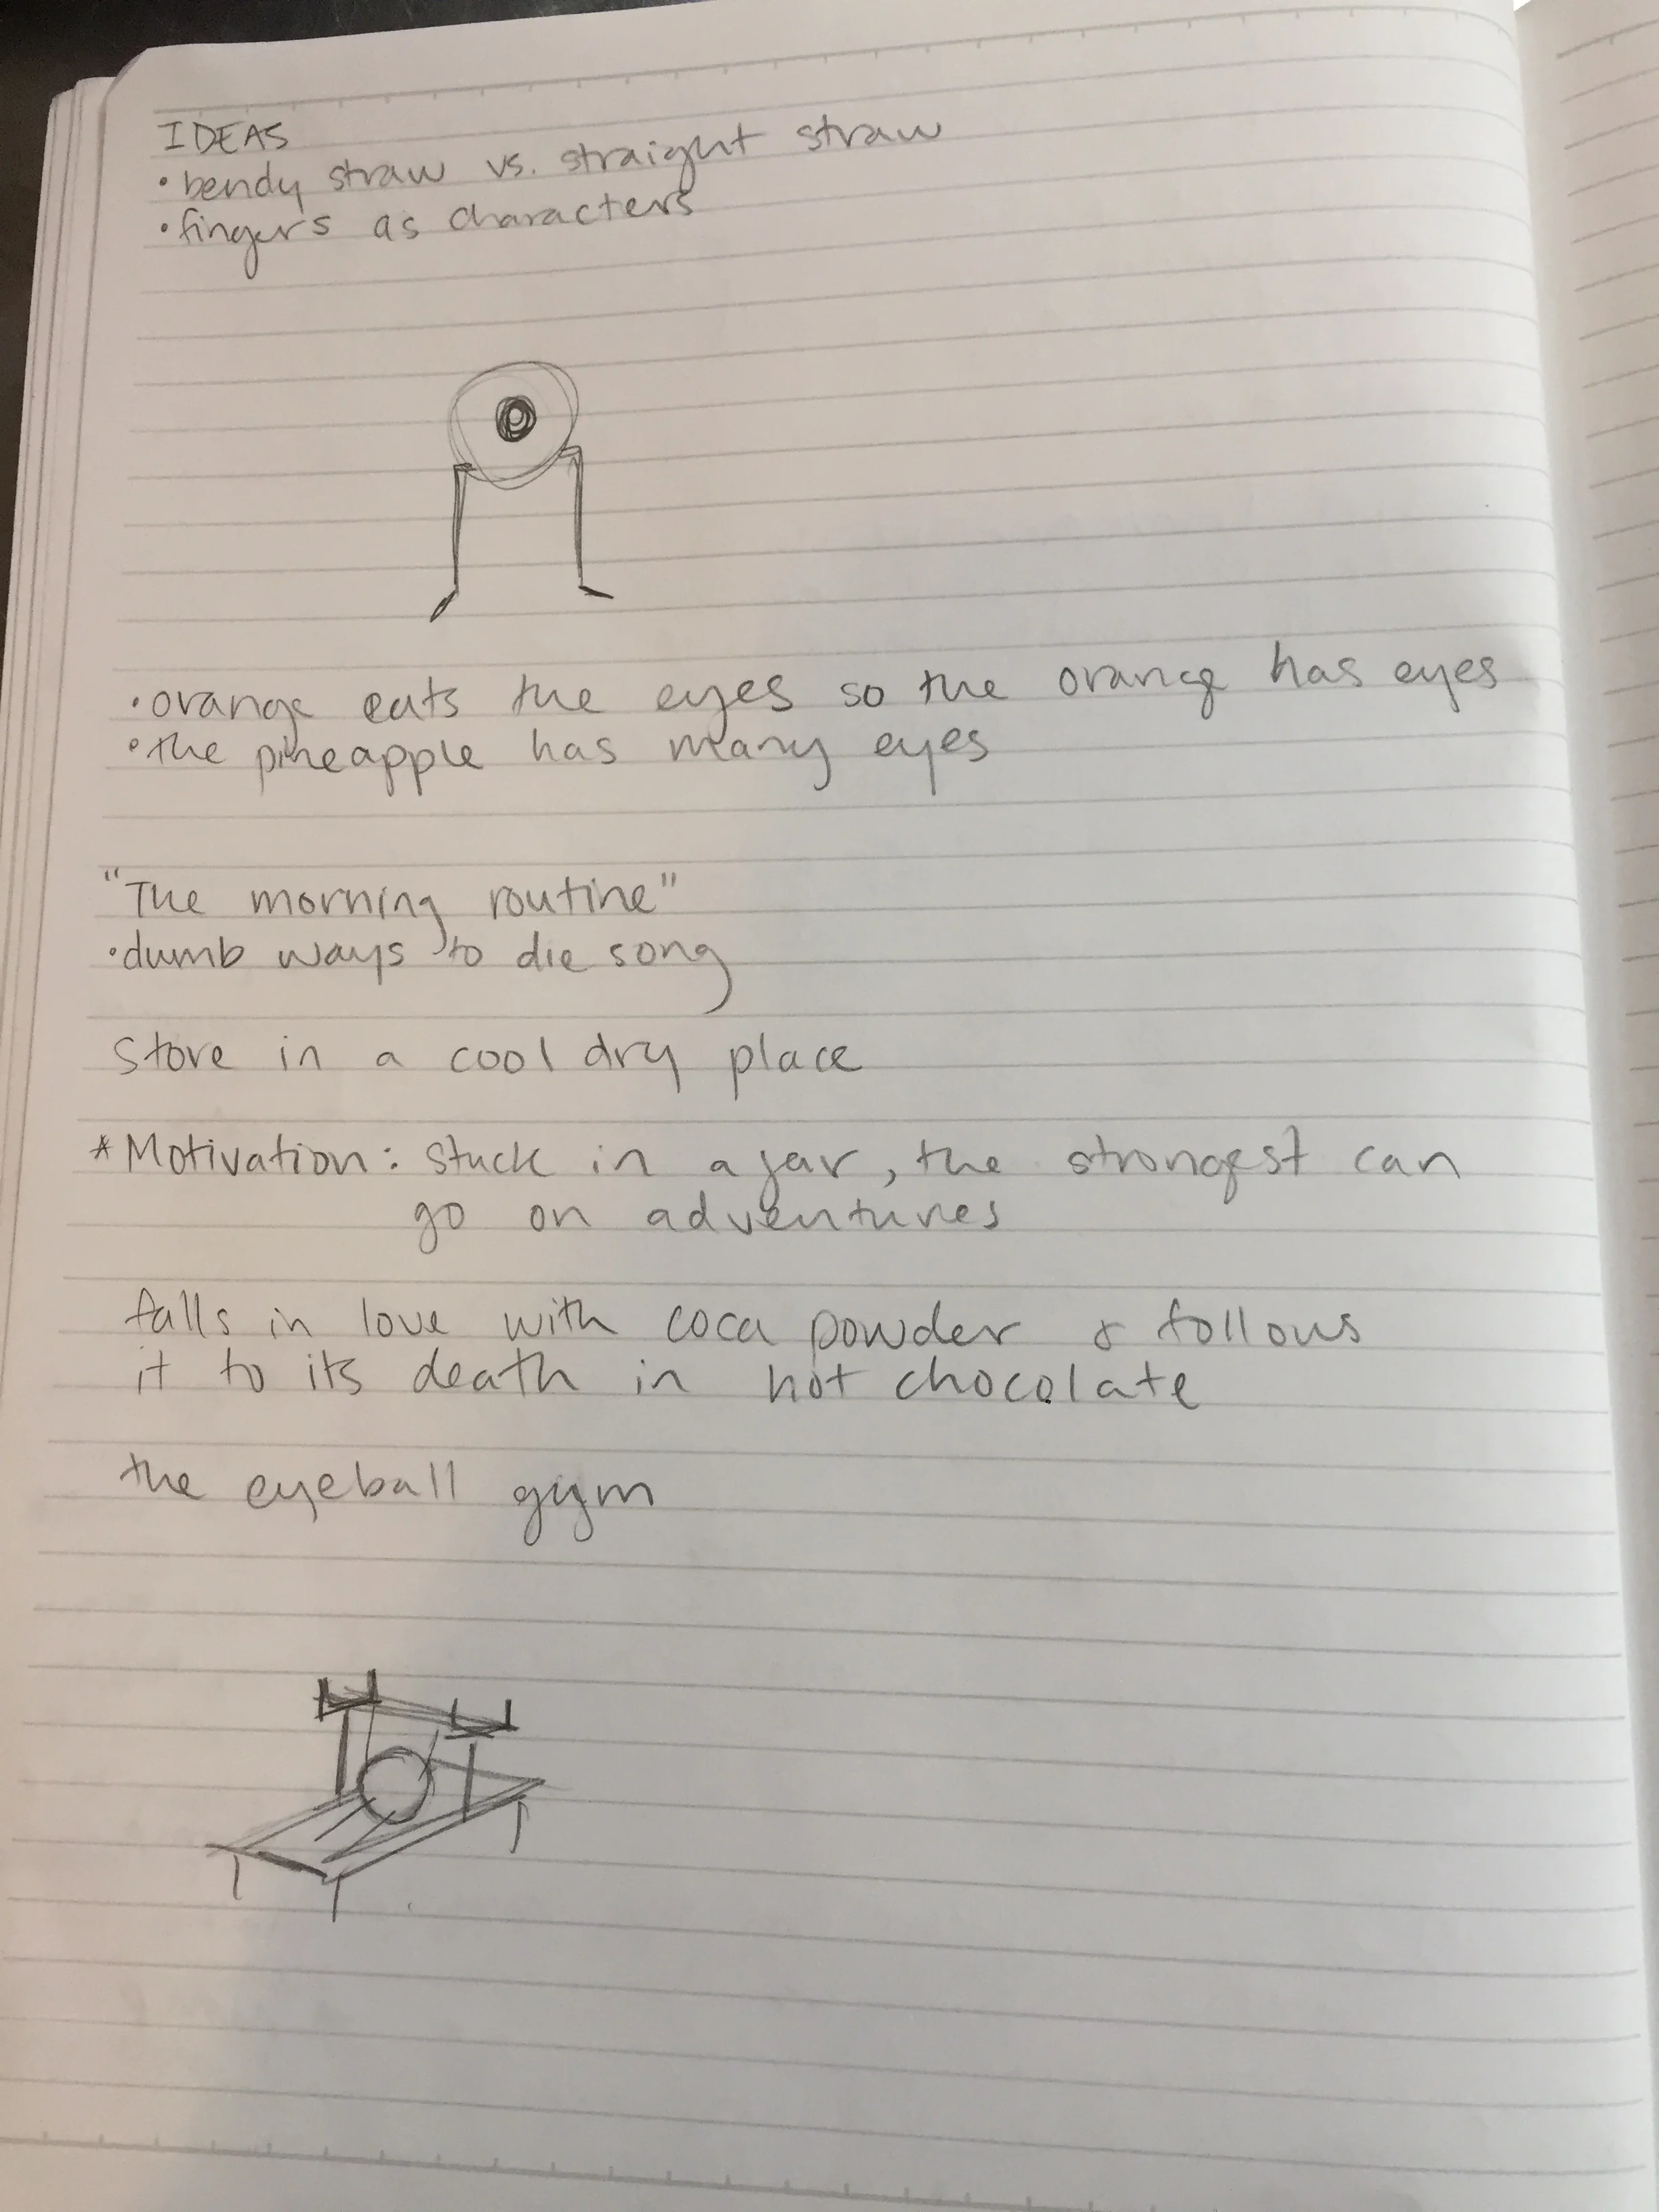 IDEAS
• bendy straw vs. straight straw
• fingers as characters
• orange eats the eyes so the orange has eyes
• the pineapple has many eyes
"The morning routine"
• dumb ways to die song
Store in a cool dry place
* Motivation: stuck in a jar, the strongest can
go on adventures
falls in love with coca powder & follows
it to its death in hot chocolate
the eyeball gym